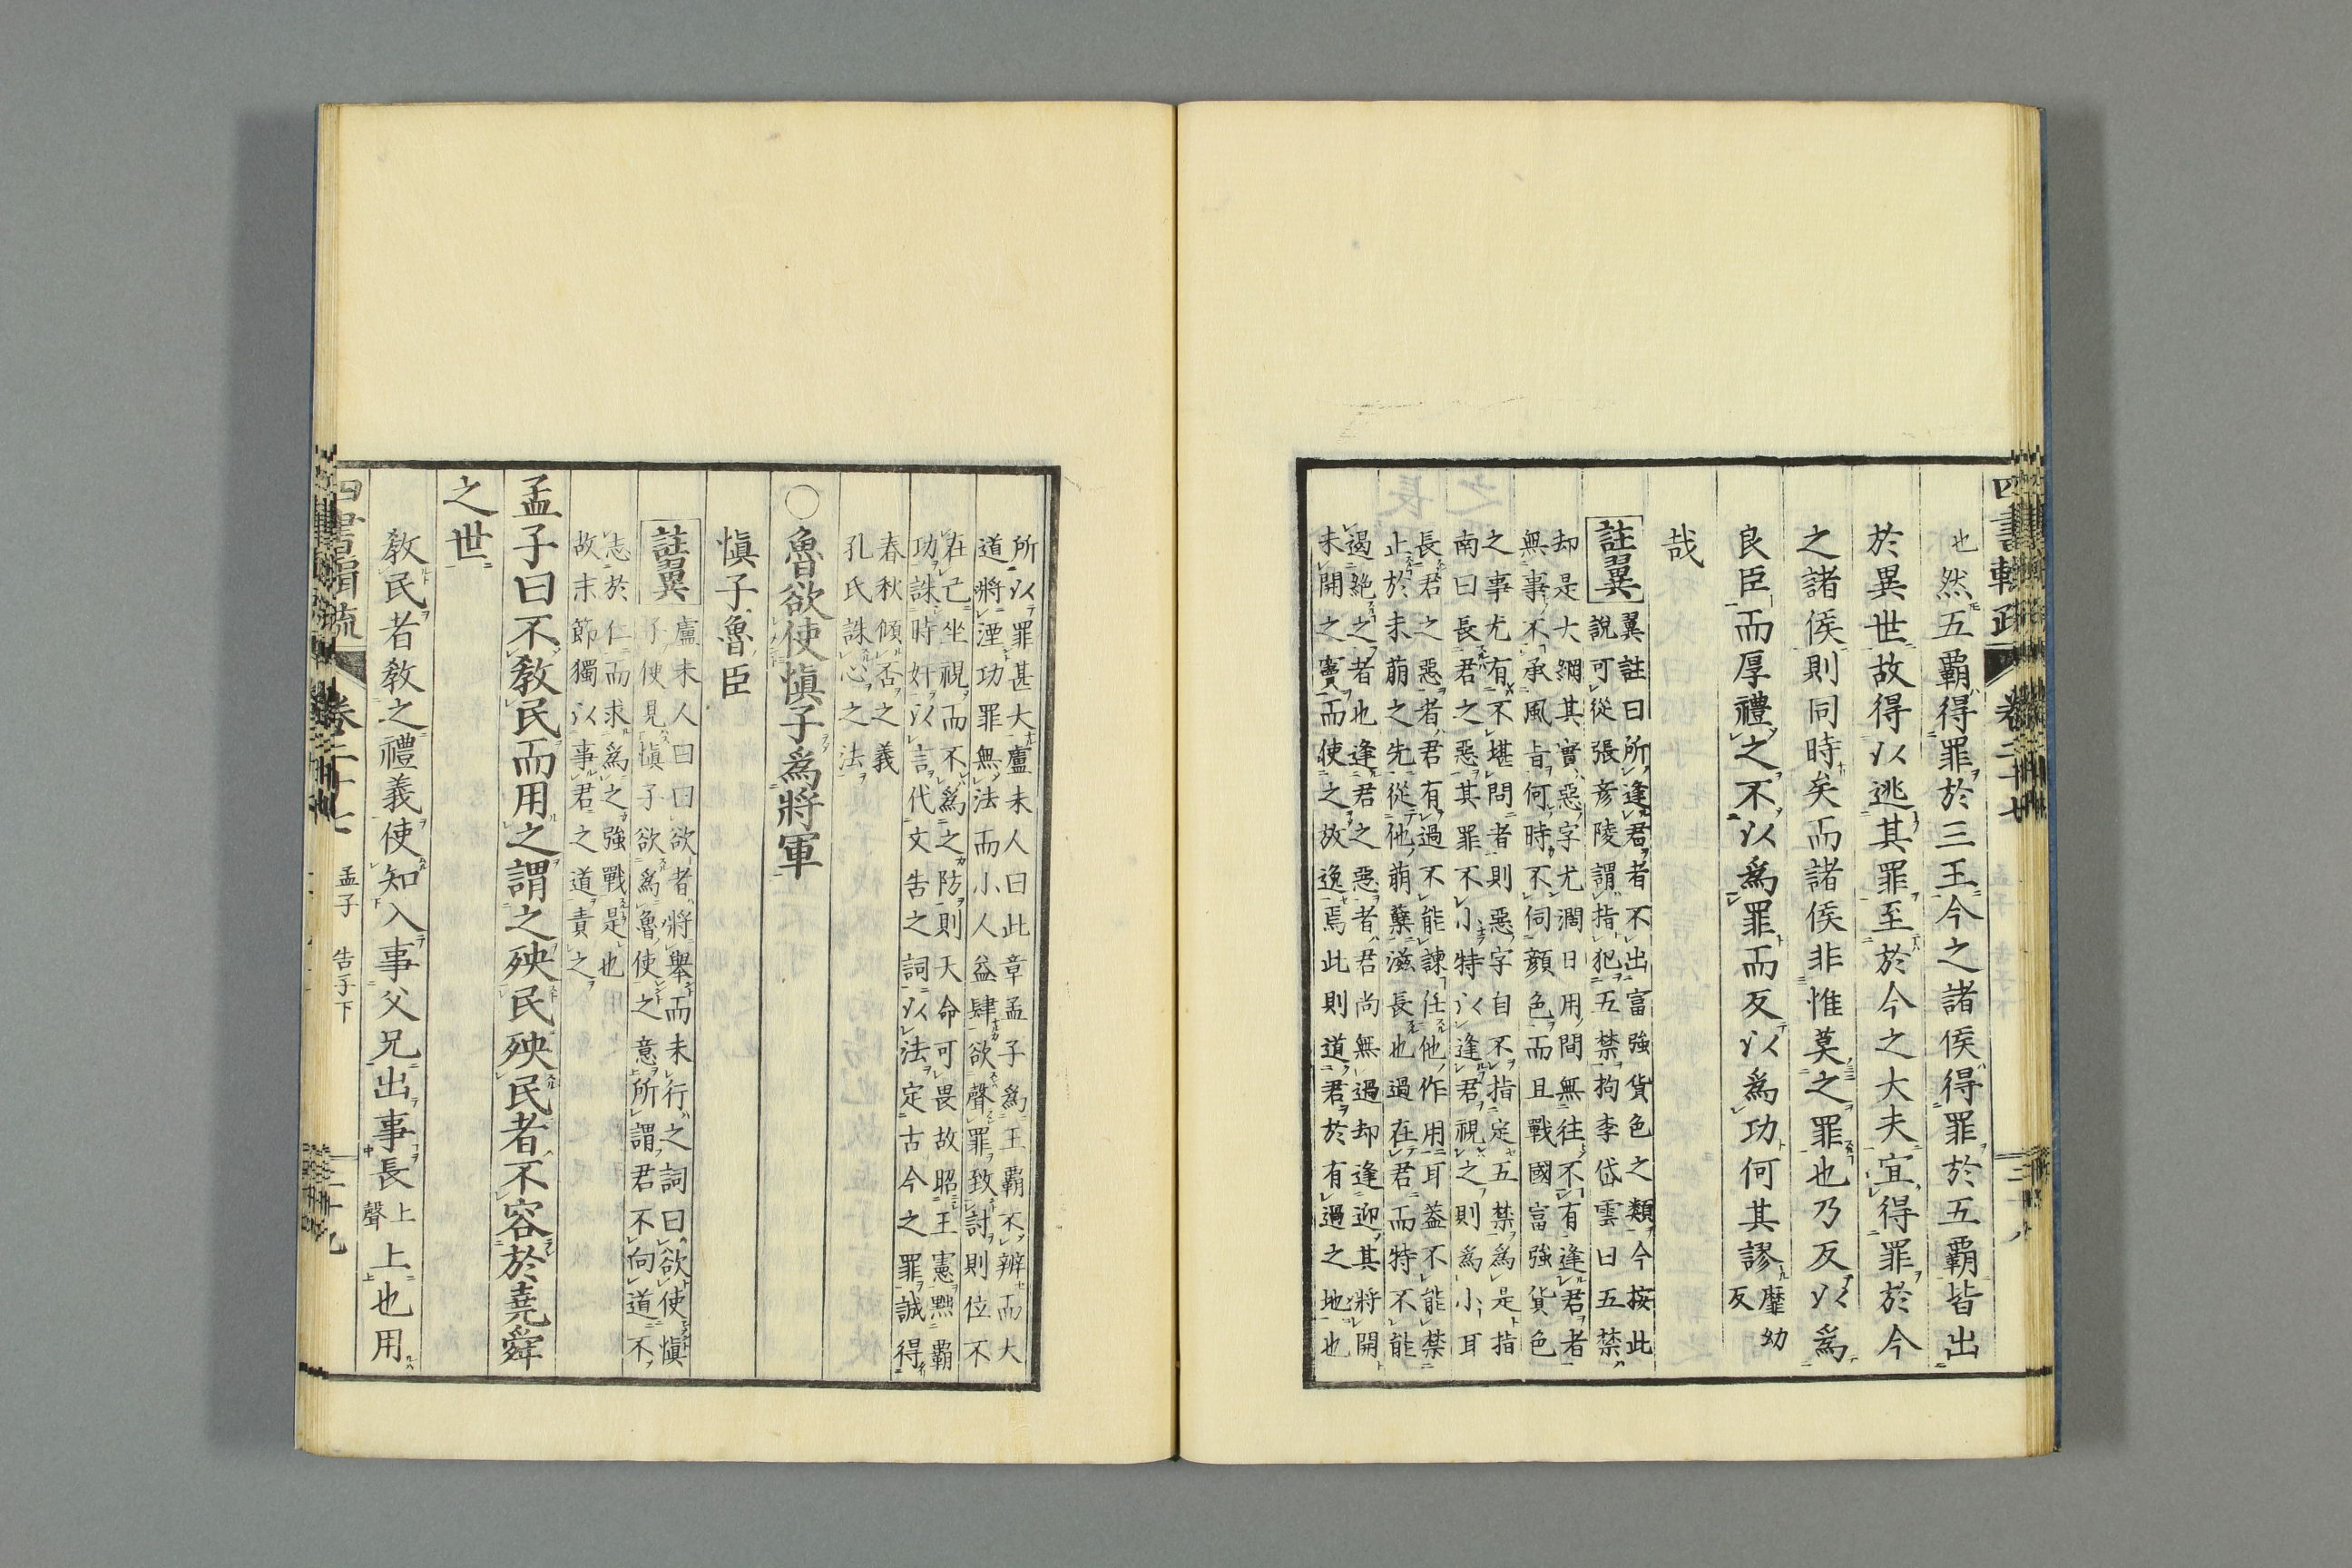 四書輯疏 卷二十七
也然五覇得罪於三王今之諸侯得罪於五覇皆出
於異世故得以逃其罪至於今之大夫宜得罪於今
之諸侯則同時矣而諸侯非惟莫之罪也乃反以爲
良臣而厚禮之不以爲罪而反以爲功何其謬靡幼反
哉
註翼
翼註曰所逢君者不出富強貨色之類今按此
說可從張彥陵謂指犯五禁拘李岱雲曰五禁
却是大綱其實惡字尤濶日用間無往不有逢君者
無事不承風旨何時不伺顔色而且戰國富強貨色
之事尤有不堪問者則惡字自不指定五禁爲是指
南曰長君之惡其罪不小特以逢君視之則爲小耳
長君之惡者君有過不能諫任他作用耳葢不能禁
止於未萠之先從他萠蘖滋長也過在君而特不能
遏絶之者也逢君之惡者君尚無過却逢迎其將開
未開之竇而使之放逸焉此則道君於有過之地也
所以罪甚大盧未人曰此章孟子爲王覇不辨而大
道將湮功罪無法而小人益肆欲聲罪致討則位不
在己坐視而不爲之防則天命可畏故昭王憲㸃覇
功誅時奸以言代文告之詞以法定古今之罪誠得
春秋傾否之義
孔氏誅心之法
○魯欲使愼子爲將軍
愼子魯臣
註翼
盧未人曰曰欲者將舉而未行之詞曰欲使愼
子使見愼子欲爲魯使之意所謂君不向道不
志於仁而求爲之強戰是也
故末節獨以事君之道責之
孟子曰不敎民而用之謂之殃民殃民者不容於堯舜
之世
敎民者敎之禮義使知入事父兄出事長上聲上也用
四書輯疏 卷二十七 孟子 告子下 二十九